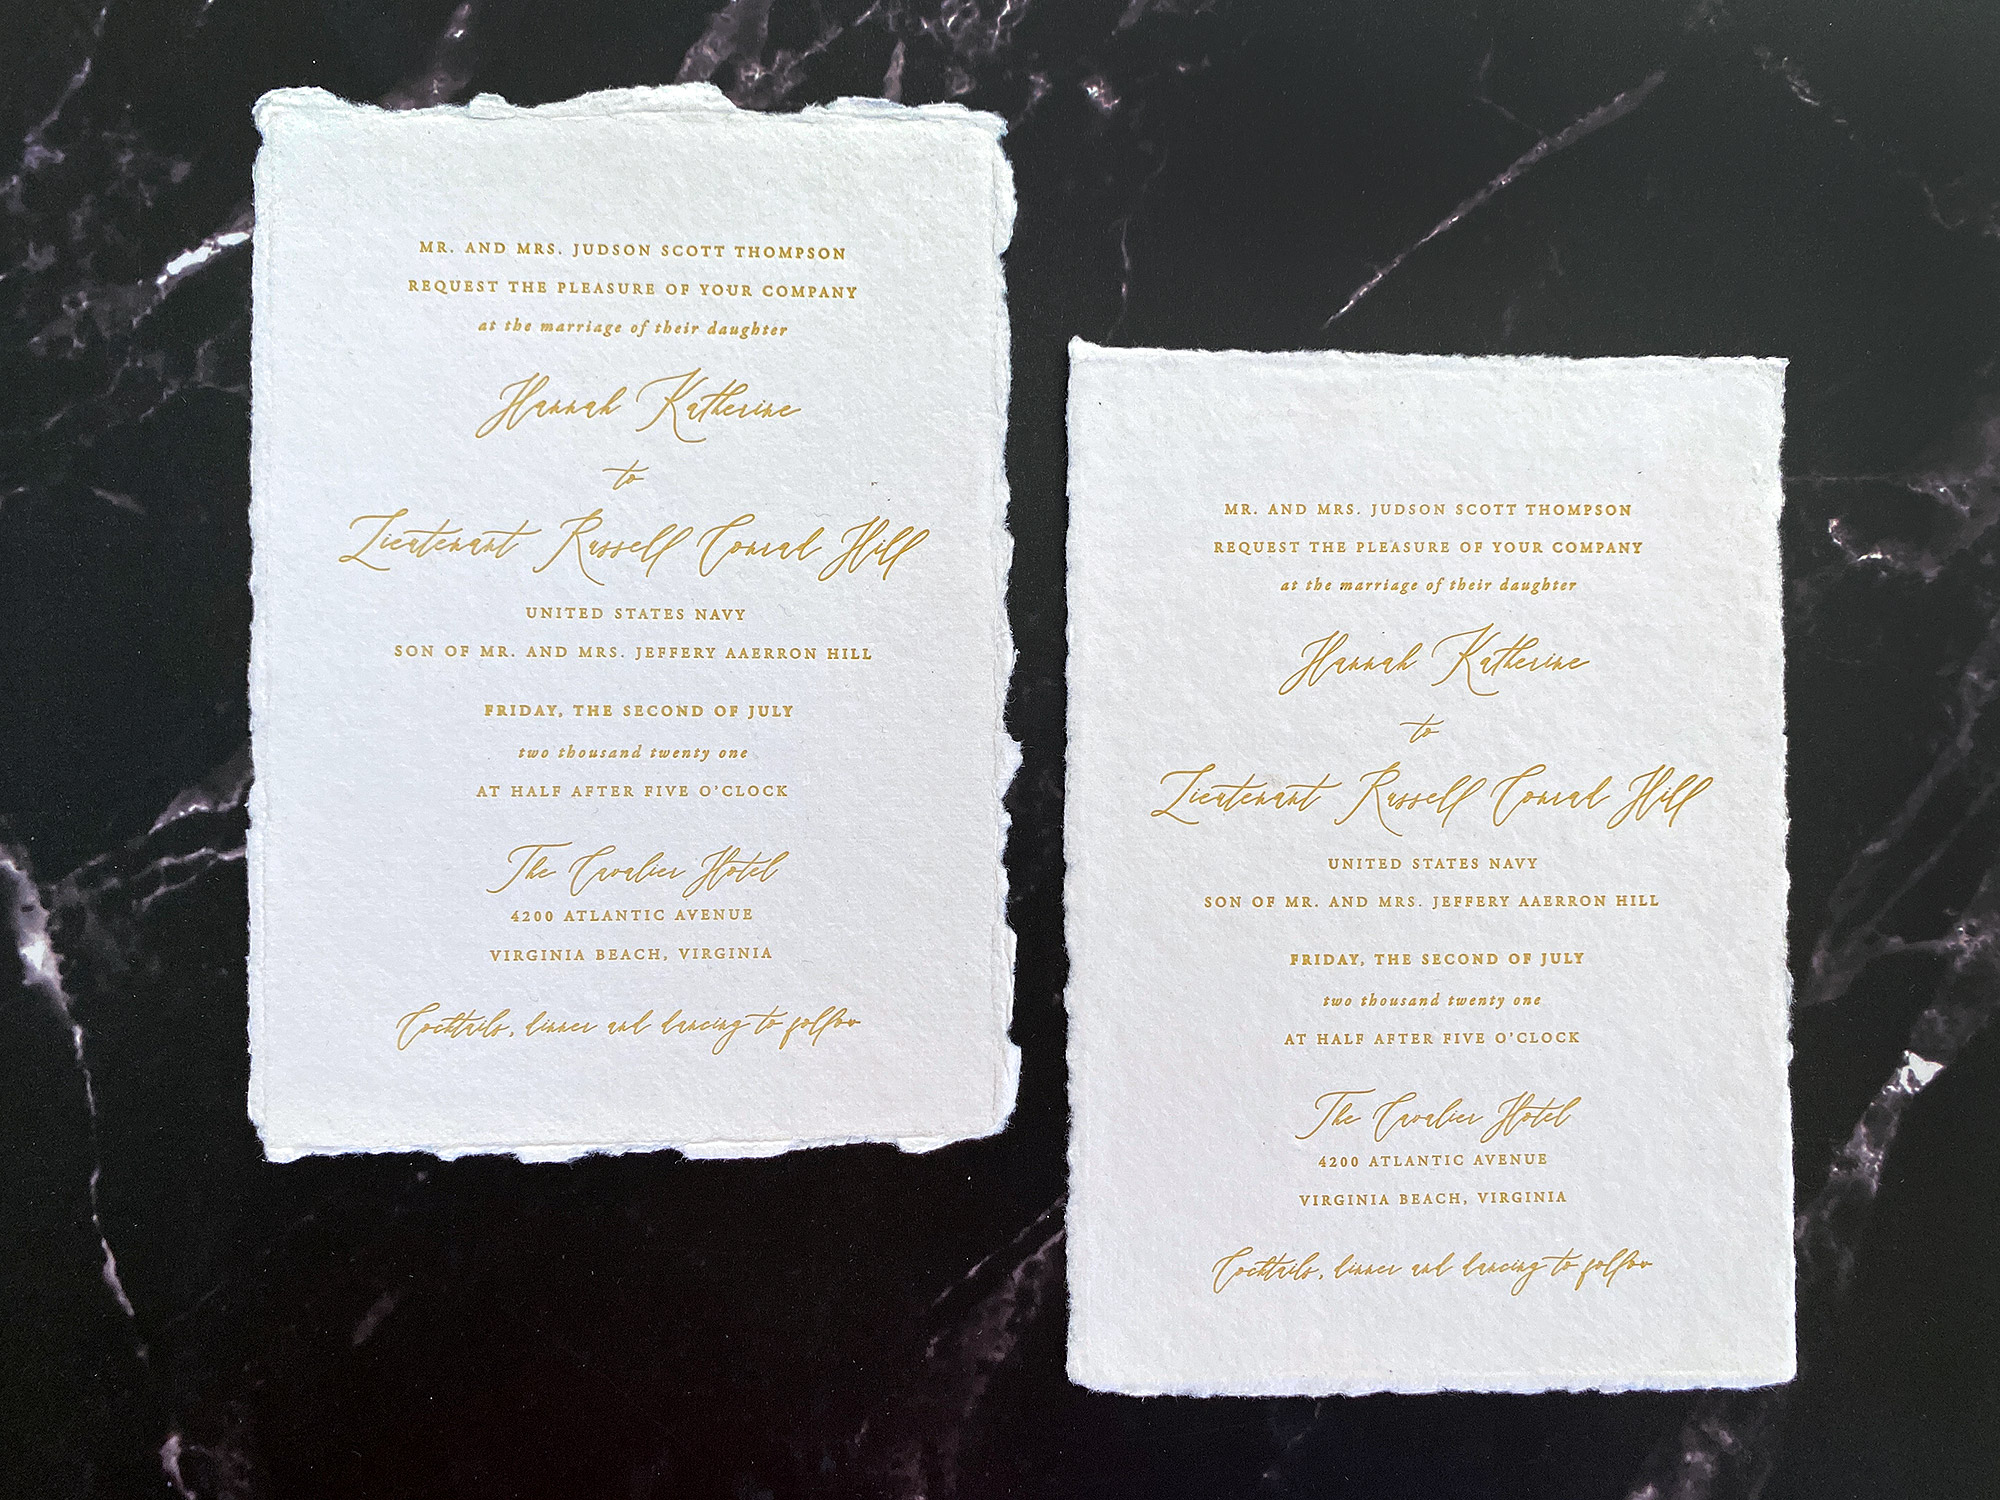 MR. AND MRS. JUDSON SCOTT THOMPSON
REQUEST THE PLEASURE OF YOUR COMPANY
at the marriage of their daughter
Hannah Katherine
to
Lieutenant Russell Conrad Hill
UNITED STATES NAVY
SON OF MR. AND MRS. JEFFERY AAERRON HILL
FRIDAY, THE SECOND OF JULY
two thousand twenty one
AT HALF AFTER FIVE O'CLOCK
The Cavalier Hotel
4200 ATLANTIC AVENUE
VIRGINIA BEACH, VIRGINIA
Cocktails, dinner and dancing to follow
MR. AND MRS. JUDSON SCOTT THOMPSON
REQUEST THE PLEASURE OF YOUR COMPANY
at the marriage of their daughter
Hannah Katherine
to
Lieutenant Russell Conrad Hill
UNITED STATES NAVY
SON OF MR. AND MRS. JEFFERY AAERRON HILL
FRIDAY, THE SECOND OF JULY
two thousand twenty one
AT HALF AFTER FIVE O'CLOCK
The Cavalier Hotel
4200 ATLANTIC AVENUE
VIRGINIA BEACH, VIRGINIA
Cocktails, dinner and dancing to follow